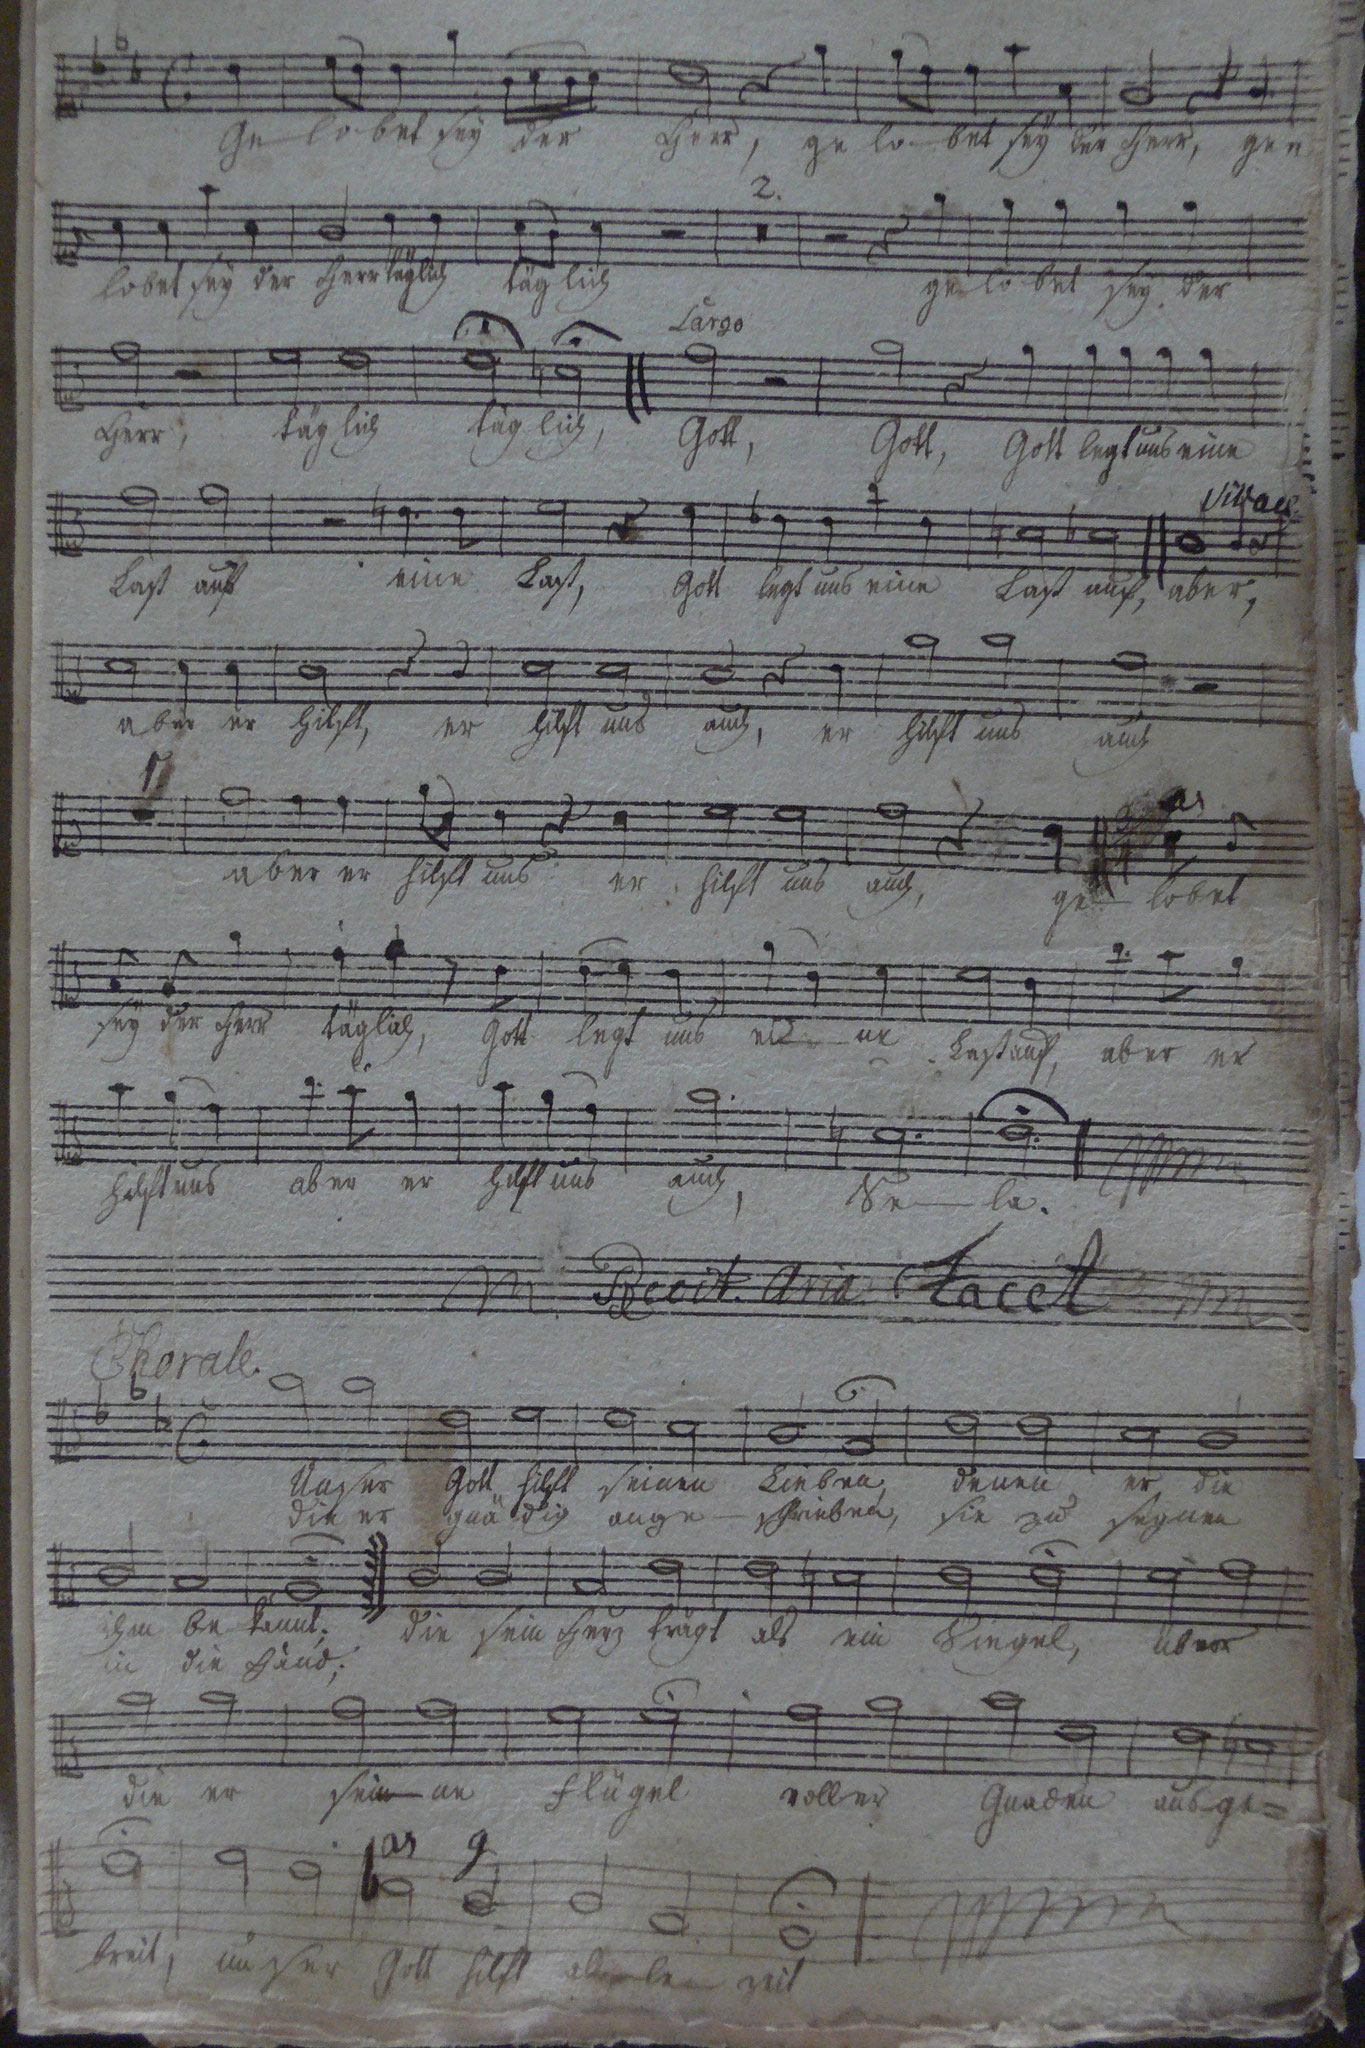 Ge-lo-bet sey der Herr, ge lo-bet sey der Herr, gen
2.
lobet sey der Herr täglich täglich ge lo bet sey der
Largo
Herr, täglich täglich, Gott, Gott, Gott legt uns eine
Vivace
Last auf eine Last, Gott legt uns eine Last auf, aber,
aber er hilft, er hilft uns auch, er hilft uns auch
1
as
aber er hilft uns er hilft uns auch, ge-lobet
sey der Herr täglich, Gott legt uns ei-ne Last auf, aber er
hilft uns aber er hilft uns auch, Se-la.
Recit. Aria Tacet
Chorale.
Unser Gott hilft seinen Lieben, denen er die
die er gnädig ange-schrieben, sie zu segnen
ihm bekannt; die sein Herz trägt als ein Siegel, über
in die Hand;
die er sei-ne Flügel voller Gnaden ausge=
as g
breit, unser Gott hilft allezeit